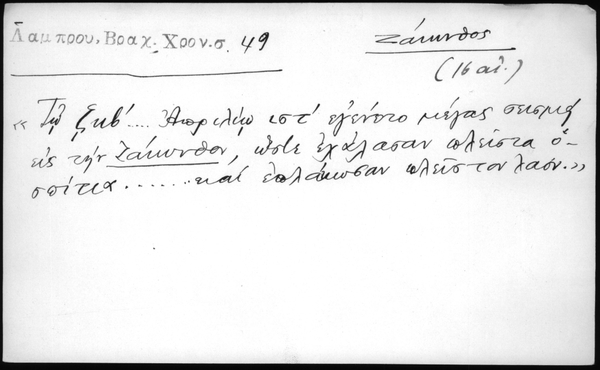 Λαμπρου, Βραχ. Χρον. σ. 49
Ζάκυνθος
(16 αἰ.)
« Τῷ ζκβ´.... Ἀπριλίῳ ιστ´ ἐγένετο μέγας σεισμὸς
εἰς τὴν Ζάκυνθον, ὥστε ἐχάλασαν πλεῖστα ὁ-
σπίτια ....... καὶ ἐπλάκωσαν πλεῖστον λαόν.»